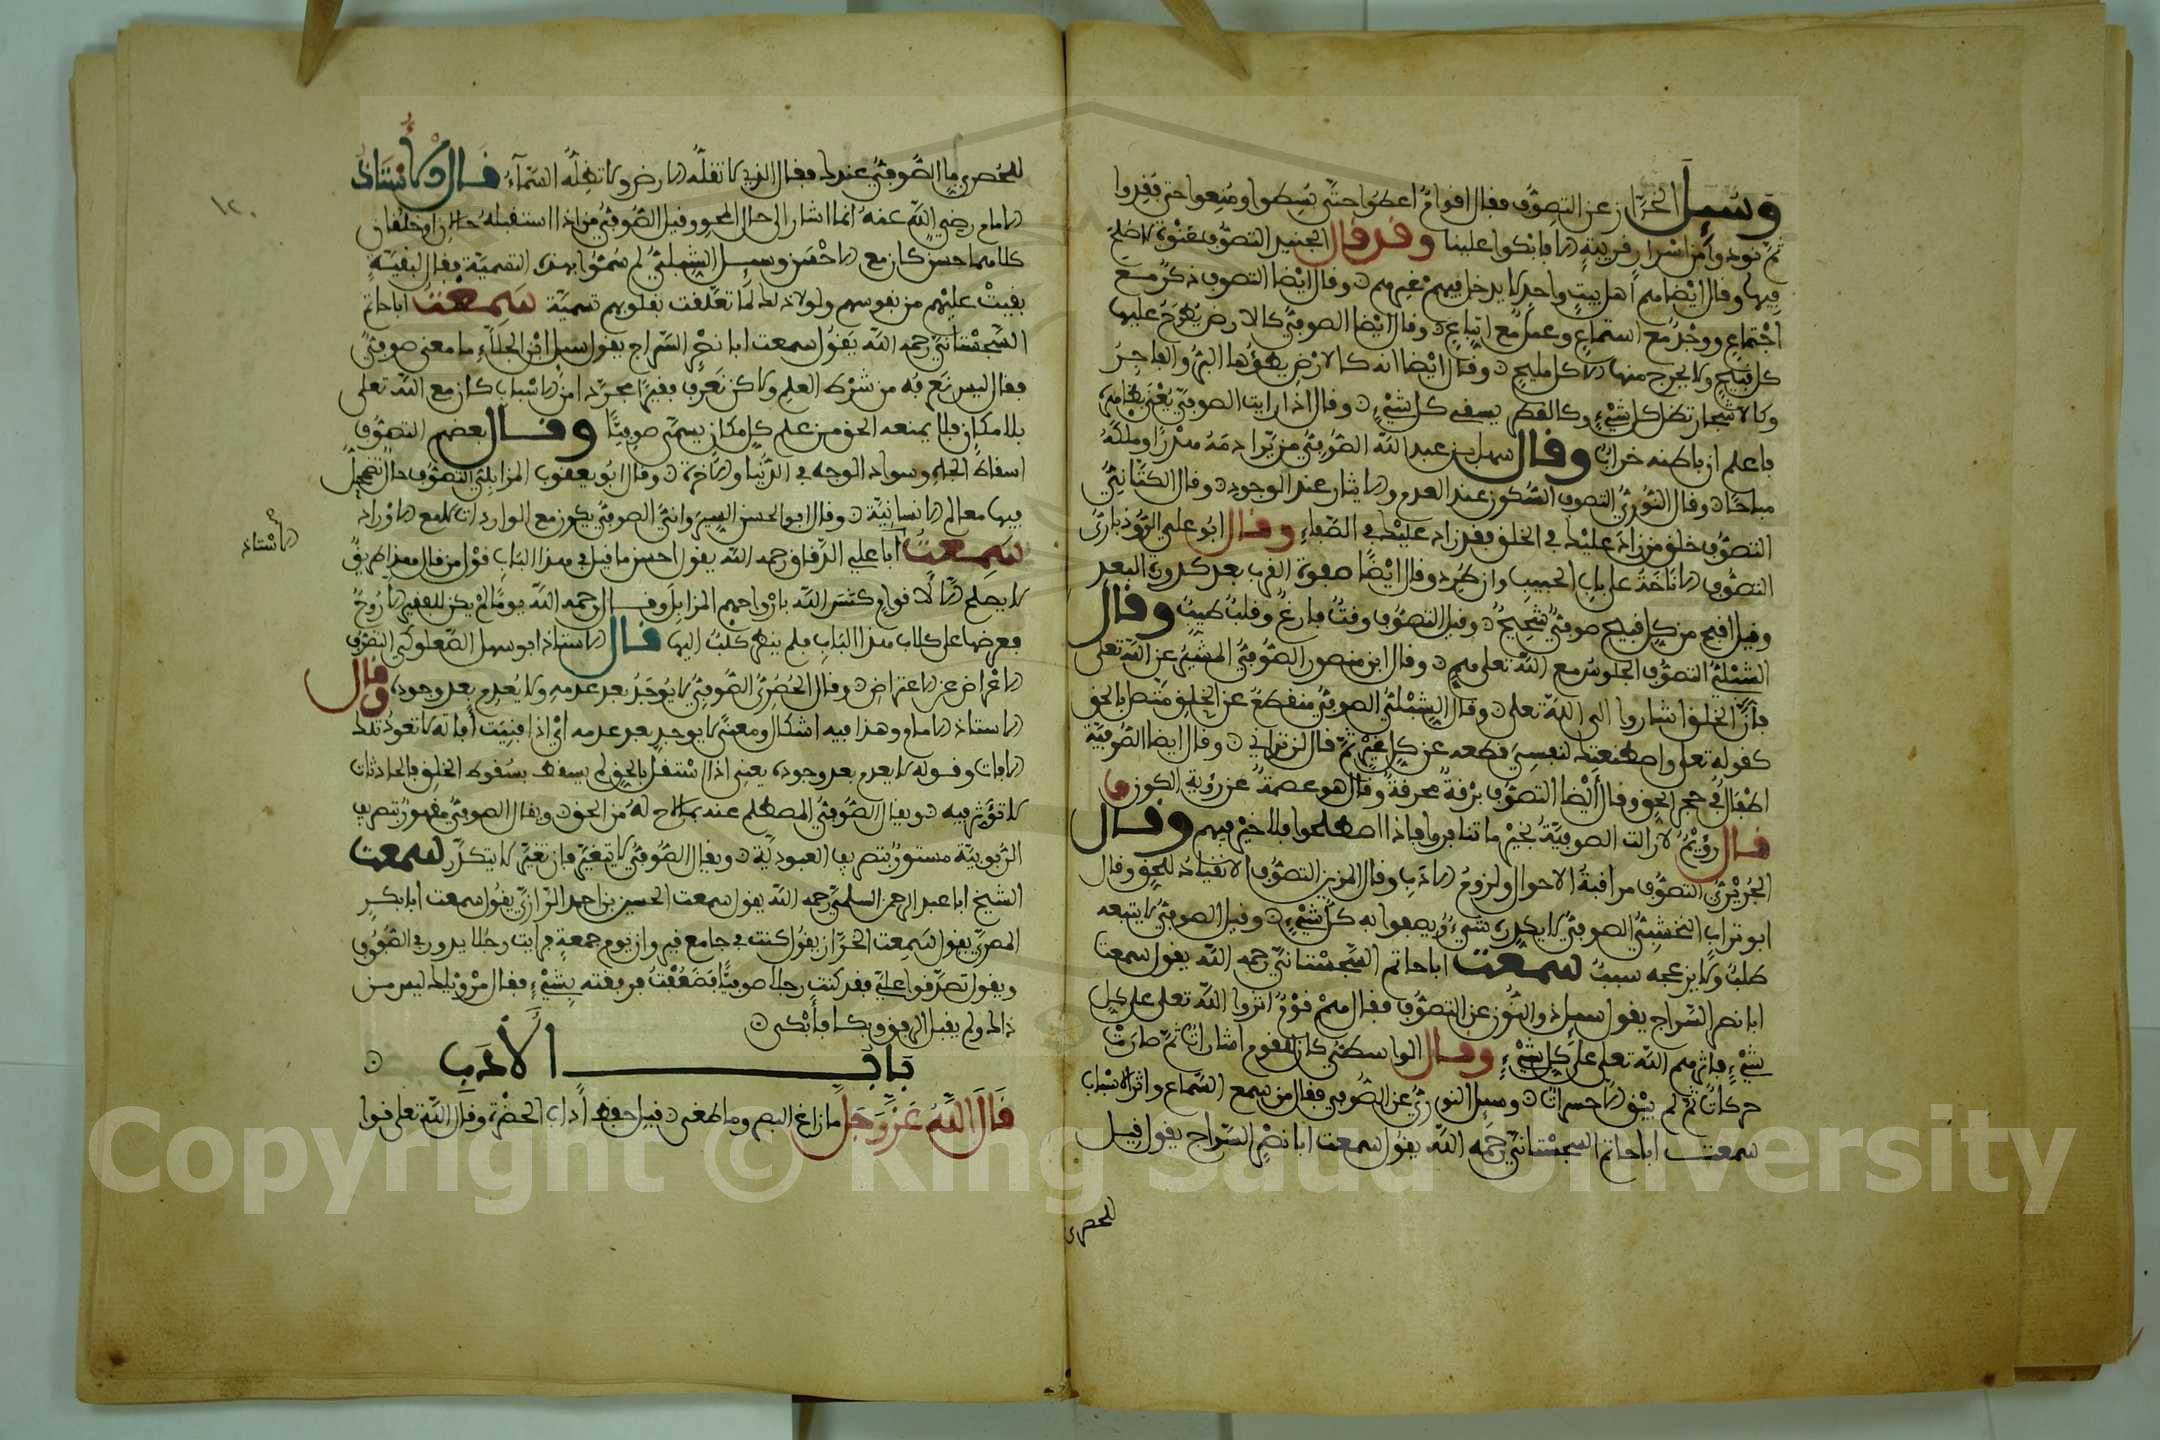 وسيل الخراز عن التصوف فقال اقوام اعطوا حتى بسطوا ومنعوا حتى فقدوا
ثم نودوا من اسرار قريبة الا فابكوا علينا وقد قال الجنيد التصوف عنوة لا صلح
فيها وقال ايضا هم اهل بيت واحد لا يدخل فيهم غيرهم وقال ايضا التصوف ذكر مع
اجتماع ووجد مع استماع وعمل مع اتباع وقال ايضا الصوفي كالارض يطرح عليها
كل قبيح ولا يخرج منها الا كل مليح وقال ايضا انه كالارض يطؤها البر والفاجر
وكالاشجار تظل كل شيء وكالقطر يسقي كل شيء وقال اذا رايت الصوفي يعنى بظاهره
فاعلم ان باطنه خراب وقال سهل بن عبد الله الصوفي من يرا دمه هدرا وملكه
مباحا وقال النوري التصوف السكون عند العدم والايثار عند الوجود وقال الكتاني
التصوف خلق من زاد عليك في الخلق فقد زاد عليك في الصفاء وقال ابو علي الروذباري
التصوف الاناخة على باب الحبيب وان طرد وقال ايضا صفوة القرب بعد كدورة البعد
وقيل اقبح من كل قبيح صوفي شحيح وقيل التصوف وقت فارغ وقلب طيب وقال
الشبلي التصوف الجلوس مع الله تعلى بلا هم وقال ابن منصور الصوفي المشير عن الله تعلى
فان الخلق اشاروا الى الله تعلى وقال الشبلي الصوفي منقطع عن الخلق متصل بالحق
كقوله تعلى واصطنعتك لنفسي قطعه عن كل غير ثم قال لن تراني وقال ايضا الصوفية
اطفال في حجر الحق وقال ايضا التصوف برقة محرقة وقال هو عصمة عن رؤية الكون و
قال رويم لا زالت الصوفية بخير ما تنافروا فاذا اصطلحوا فلا خير فيهم وقال
الجريري التصوف مراقبة الاحوال ولزوم الادب وقال المزين التصوف الانقياد للحق وقال
ابو تراب النخشبي الصوفي لا يكدره شيء ويصفوا به كل شيء وقيل الصوفي لا يتعبه
طلب ولا يزعجه سبب سمعت ابا حاتم السجستاني رحمه الله يقول سمعت
ابا نصر السراج يقول سيل ذو النون عن التصوف فقال هم قوم اثروا الله تعلى على كل
شيء فاثرهم الله تعلى على كل شيء وقال الواسطي كان للقوم اشارات ثم صارت
حركات ثم لم يبق الا حسرات وسيل النوري عن الصوفي فقال من سمع السماع واثر الاسباب
سمعت ابا حاتم السجستاني رحمه الله يقول سمعت ابا نصر السراج يقول قيل
للحصري
١٢٠
للحصري ما الصوفي عندك فقال الذي لا تقله الارض ولا تظله السماء قال الاستاذ
الامام رضي الله عنه انما اشار الى حال المحو وقيل الصوفي من اذا استقبله حالان او خلقان
كلاهما حسن كان مع الاحسن وسيل الشبلي لم سموا بهذه التسمية فقال لبقية
بقيت عليهم من نفوسهم ولولا ذلك لما تعلقت بقلوبهم تسمية سمعت ابا حاتم
السجستاني رحمه الله يقول سمعت ابا نصر السراج يقول سيل ابن الجلاء ما معنى صوفي
فقال ليس نعرفه من شرط العلم ولاكن نعرف فقيرا مجردا من الاسباب كان مع الله تعلى
بلا مكان فلا يمنعه الحق من علم كل مكان يسمى صوفيا وقال بعضهم التصوف
اسقاط الجاه وسواد الوجه في الدنيا والاخرة وقال ابو يعقوب المزابلي التصوف حال تضمحل
فيها معالم الانسانية وقال ابو الحسن السيرواني الصوفي يكون مع الواردات لا مع الاوراد
سمعت ابا علي الدقاق رحمه الله يقول احسن ما قيل في هذا الباب قول من قال هذا طريق
الاستاذ
لا يصلح الا لاقوام كنس الله بارواحهم المزابل وقال رحمه الله يوما لم يكن للفقير الا روح
فعرضها على كلاب هذا الباب فلم ينظر كلب اليها قال الاستاذ ابو سهل الصعلوكي التصوف
الاعراض عن الاعتراض وقال الحصري الصوفي لا يوجد بعد عدمه ولا يعدم بعد وجوده وقال
الاستاذ الامام وهذا فيه اشكال ومعنى لا يوجد بعد عدمه اي اذا فنيت افاته لا تعود تلك
الافات وقوله لا يعدم بعد وجوده يعني اذا اشتغل بالحق لم يسقط بسقوط الخلق فالحادثات
لا تؤثر فيه ويقال الصوفي المصطلم عنه بما لاح له من الحق ويقال الصوفي مقهور بتصريف
الربوبية مستور بتصريف العبودية ويقال الصوفي لا يتغير فان تغير لا يتكدر سمعت
الشيخ ابا عبد الرحمن السلمي رحمه الله يقول سمعت الحسين بن احمد الرازي يقول سمعت ابا بكر
المصري يقول سمعت الخراز يقول كنت في جامع قيروان يوم جمعة فرايت رجلا يدور في الصفوف
ويقول تصدقوا علي فقد كنت رجلا صوفيا فضعفت فرفقته بشيء فقال مر ويلك ليس من
ذاك ولم يقبل الرفق وبكا فابكى
باب الأدب
قال الله عز وجل ما زاغ البصر وما طغى قيل حفظ اداب الحضرة وقال الله تعلى قوا
Copyright © King Saud University